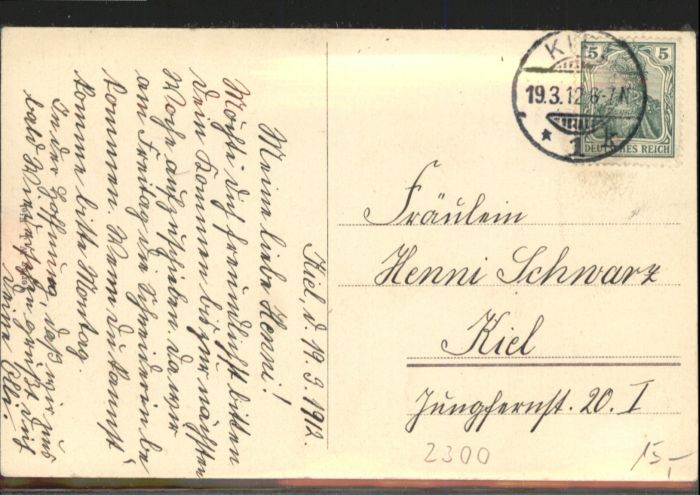 Kiel, d. 19. 3. 1912.
Meine liebe Henni!
Möchte dich freundlichst bitten
dein Kommen bis zur nächsten
Woche aufzuschieben, da wir
am Freitag die Schneiderin be
kommen. Wenn du kannst
komme bitte Montag.
In der Hoffnung, daß wir uns
bald Wiedersehen grüßt dich
deine Elly
KIEL
19.3.12.6-7N.
* 1
5 5
DEUTSCHES REICH
Fräulein
Henni Schwarz
Kiel
Jungfernst. 20. I
2300
15,-